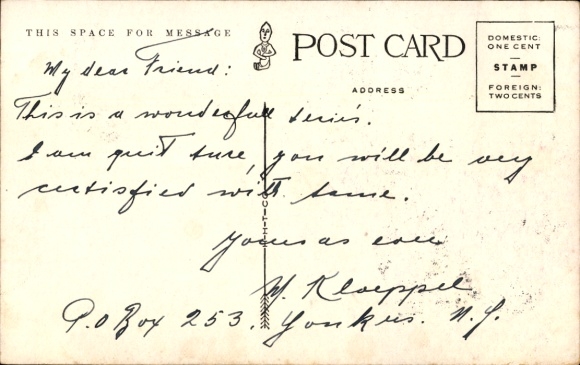 THIS SPACE FOR MESSAGE
POST CARD
ADDRESS
DOMESTIC:
ONE CENT
STAMP
FOREIGN:
TWO CENTS
My dear Friend:
This is a wonderfull series.
I am quit sure, you will be very
satisfied with same.
Yours as ever
W. Kloeppel
P.O Box 253. Yonkers. N.Y.